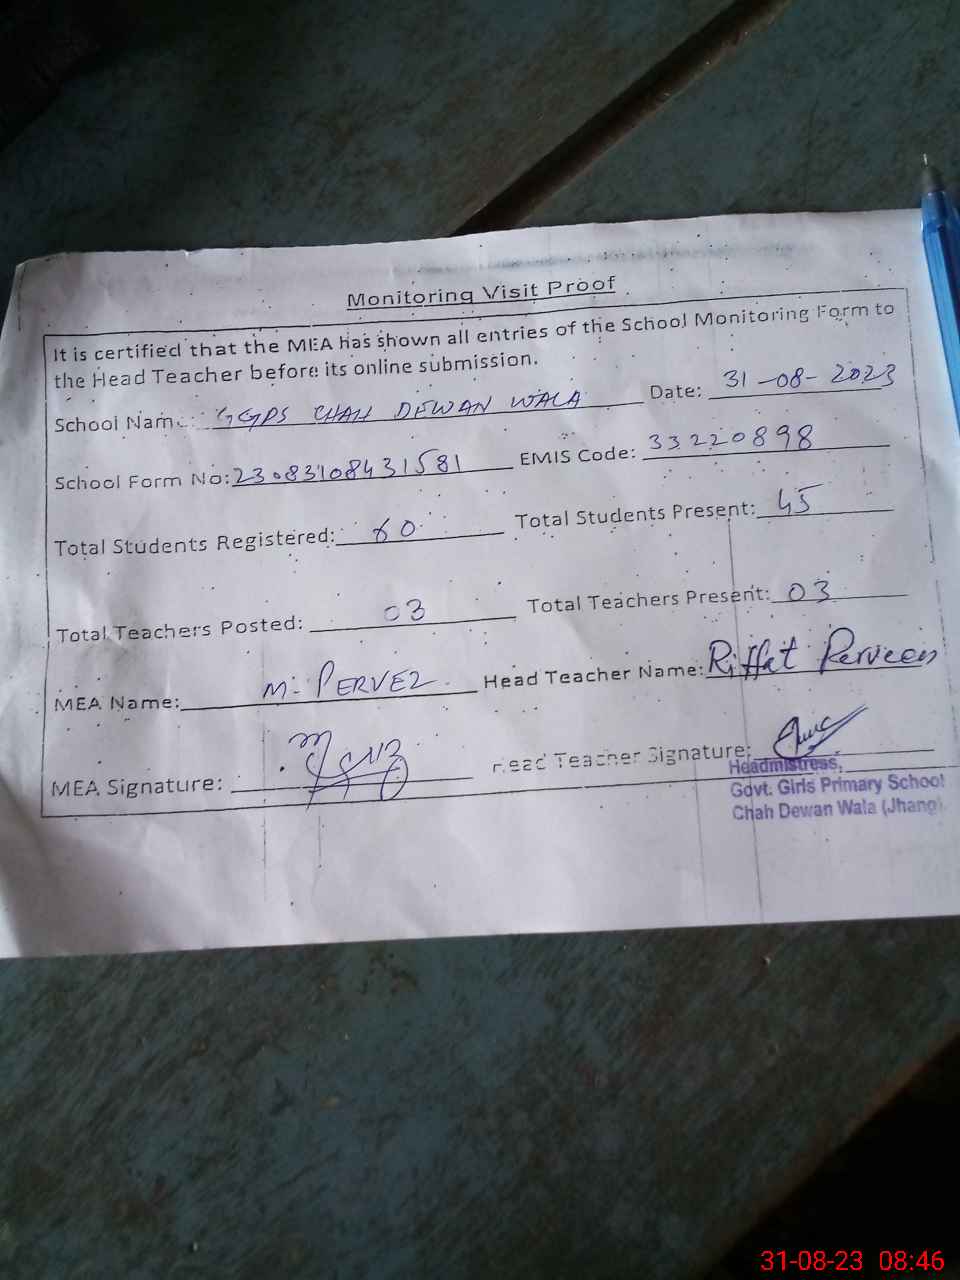 Monitoring Visit Proof
It is certified that the MEA has shown all entries of the School Monitoring Form to
the Head Teacher before its online submission.
School Name: GGPS CHAH DEWAN WALA Date: 31-08-2023
School Form No: 23083108431581 EMIS Code: 33220898
Total Students Registered: 60 Total Students Present: 45
Total Teachers Posted: 03 Total Teachers Present: 03
MEA Name: M. PERVEZ Head Teacher Name: Riffat Perveen
MEA Signature: Head Teacher Signature:
Headmistress,
Govt. Girls Primary School
Chah Dewan Wala (Jhang).
31-08-23 08:46